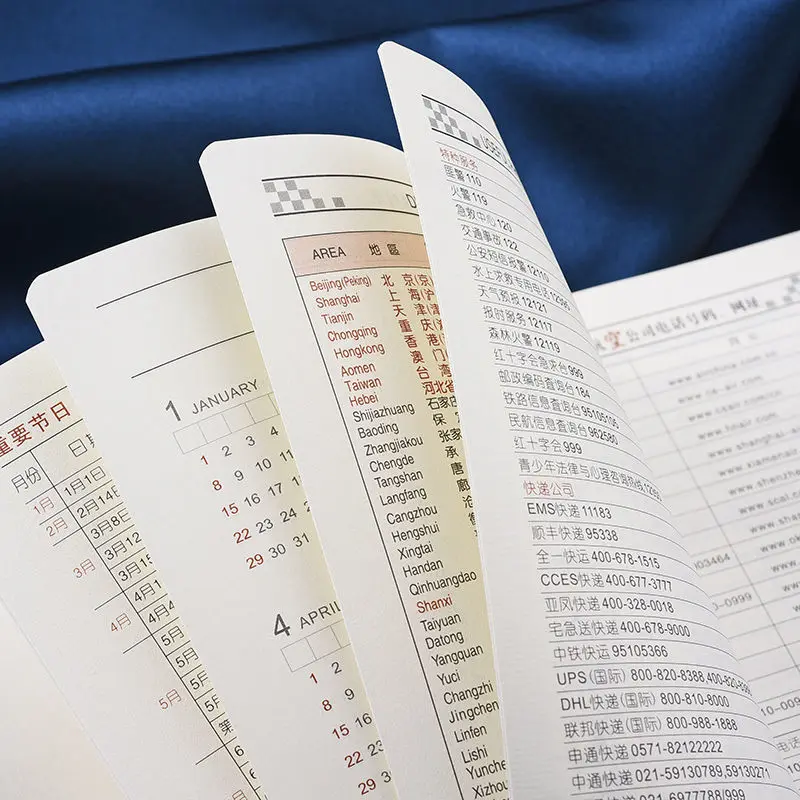 重要节日
月份
日期
1月
1月1日
2月
2月14
3月8日
3月12
3月
3月15
4月1日
4月
4月4
5月
5月
5月
5月
5月
第
6
6
1 JANUARY
1 2 3 4
8 9 10 11
15 16 17 18
22 23 24
29 30 31
4 APRIL
1 2
8 9
15 16
22 23
29
AREA 地區
Beijing(Peking) 北京(京
Shanghai 上海(沪
Tianjin 天津(津
Chongqing 重庆
Hongkong 香港(
Aomen 澳门(
Taiwan 台湾
Hebei 河北省
Shijiazhuang 石家庄
Baoding 保
Zhangjiakou 张家
Chengde 承
Tangshan 唐
Langfang 廊
Cangzhou 沧
Hengshui 衡
Xingtai
Handan
Qinhuangdao
Shanxi
Taiyuan
Datong
Yangquan
Yuci
Changzhi
Jingchen
Linfen
Lishi
Yunche
Xizhou
USEFUL
特种服务
匪警110
火警119
急救中心120
交通事故122
公安短信报警12110
水上求救专用电话12395
天气预报12121
报时服务12117
森林火警12119
红十字会急求台999
邮政编码查询台184
铁路信息查询台95105105
民航信息查询台962580
红十字会999
青少年法律与心理咨询热线12355
快递公司
EMS快递11183
顺丰快递95338
全一快运400-678-1515
CCES快递400-677-3777
亚凤快递400-328-0018
宅急送快递400-678-9000
中铁快运95105366
UPS(国际)800-820-8388,400-820-
DHL快递(国际)800-810-8000
联邦快递(国际)800-988-1888
申通快递0571-82122222
中通快递021-59130789,59130271
021-6977788/999
空公司电话号码 网址
www.airchina.com.cn
www.ce-air.com
www.csair.com.cn
www.hnair.com
www.shanghai-a
www.xiamenair
www.shenzhe
www.scal.co
www.shan
www.ok
003464
0-0999
10-009